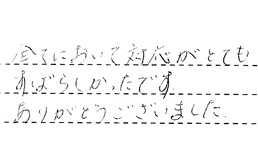 全てにおいて対応がとても
すばらしかったです.
ありがとうございました.